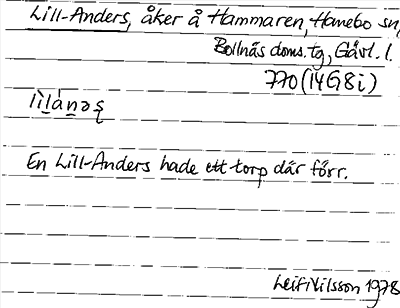 Lill-Anders, åker å Hammaren, Hanebo sn,
Bollnäs doms.tg, Gävl. l.
770 (14G8i)
En Lill-Anders hade ett torp där förr.
Leif Nilsson 1978